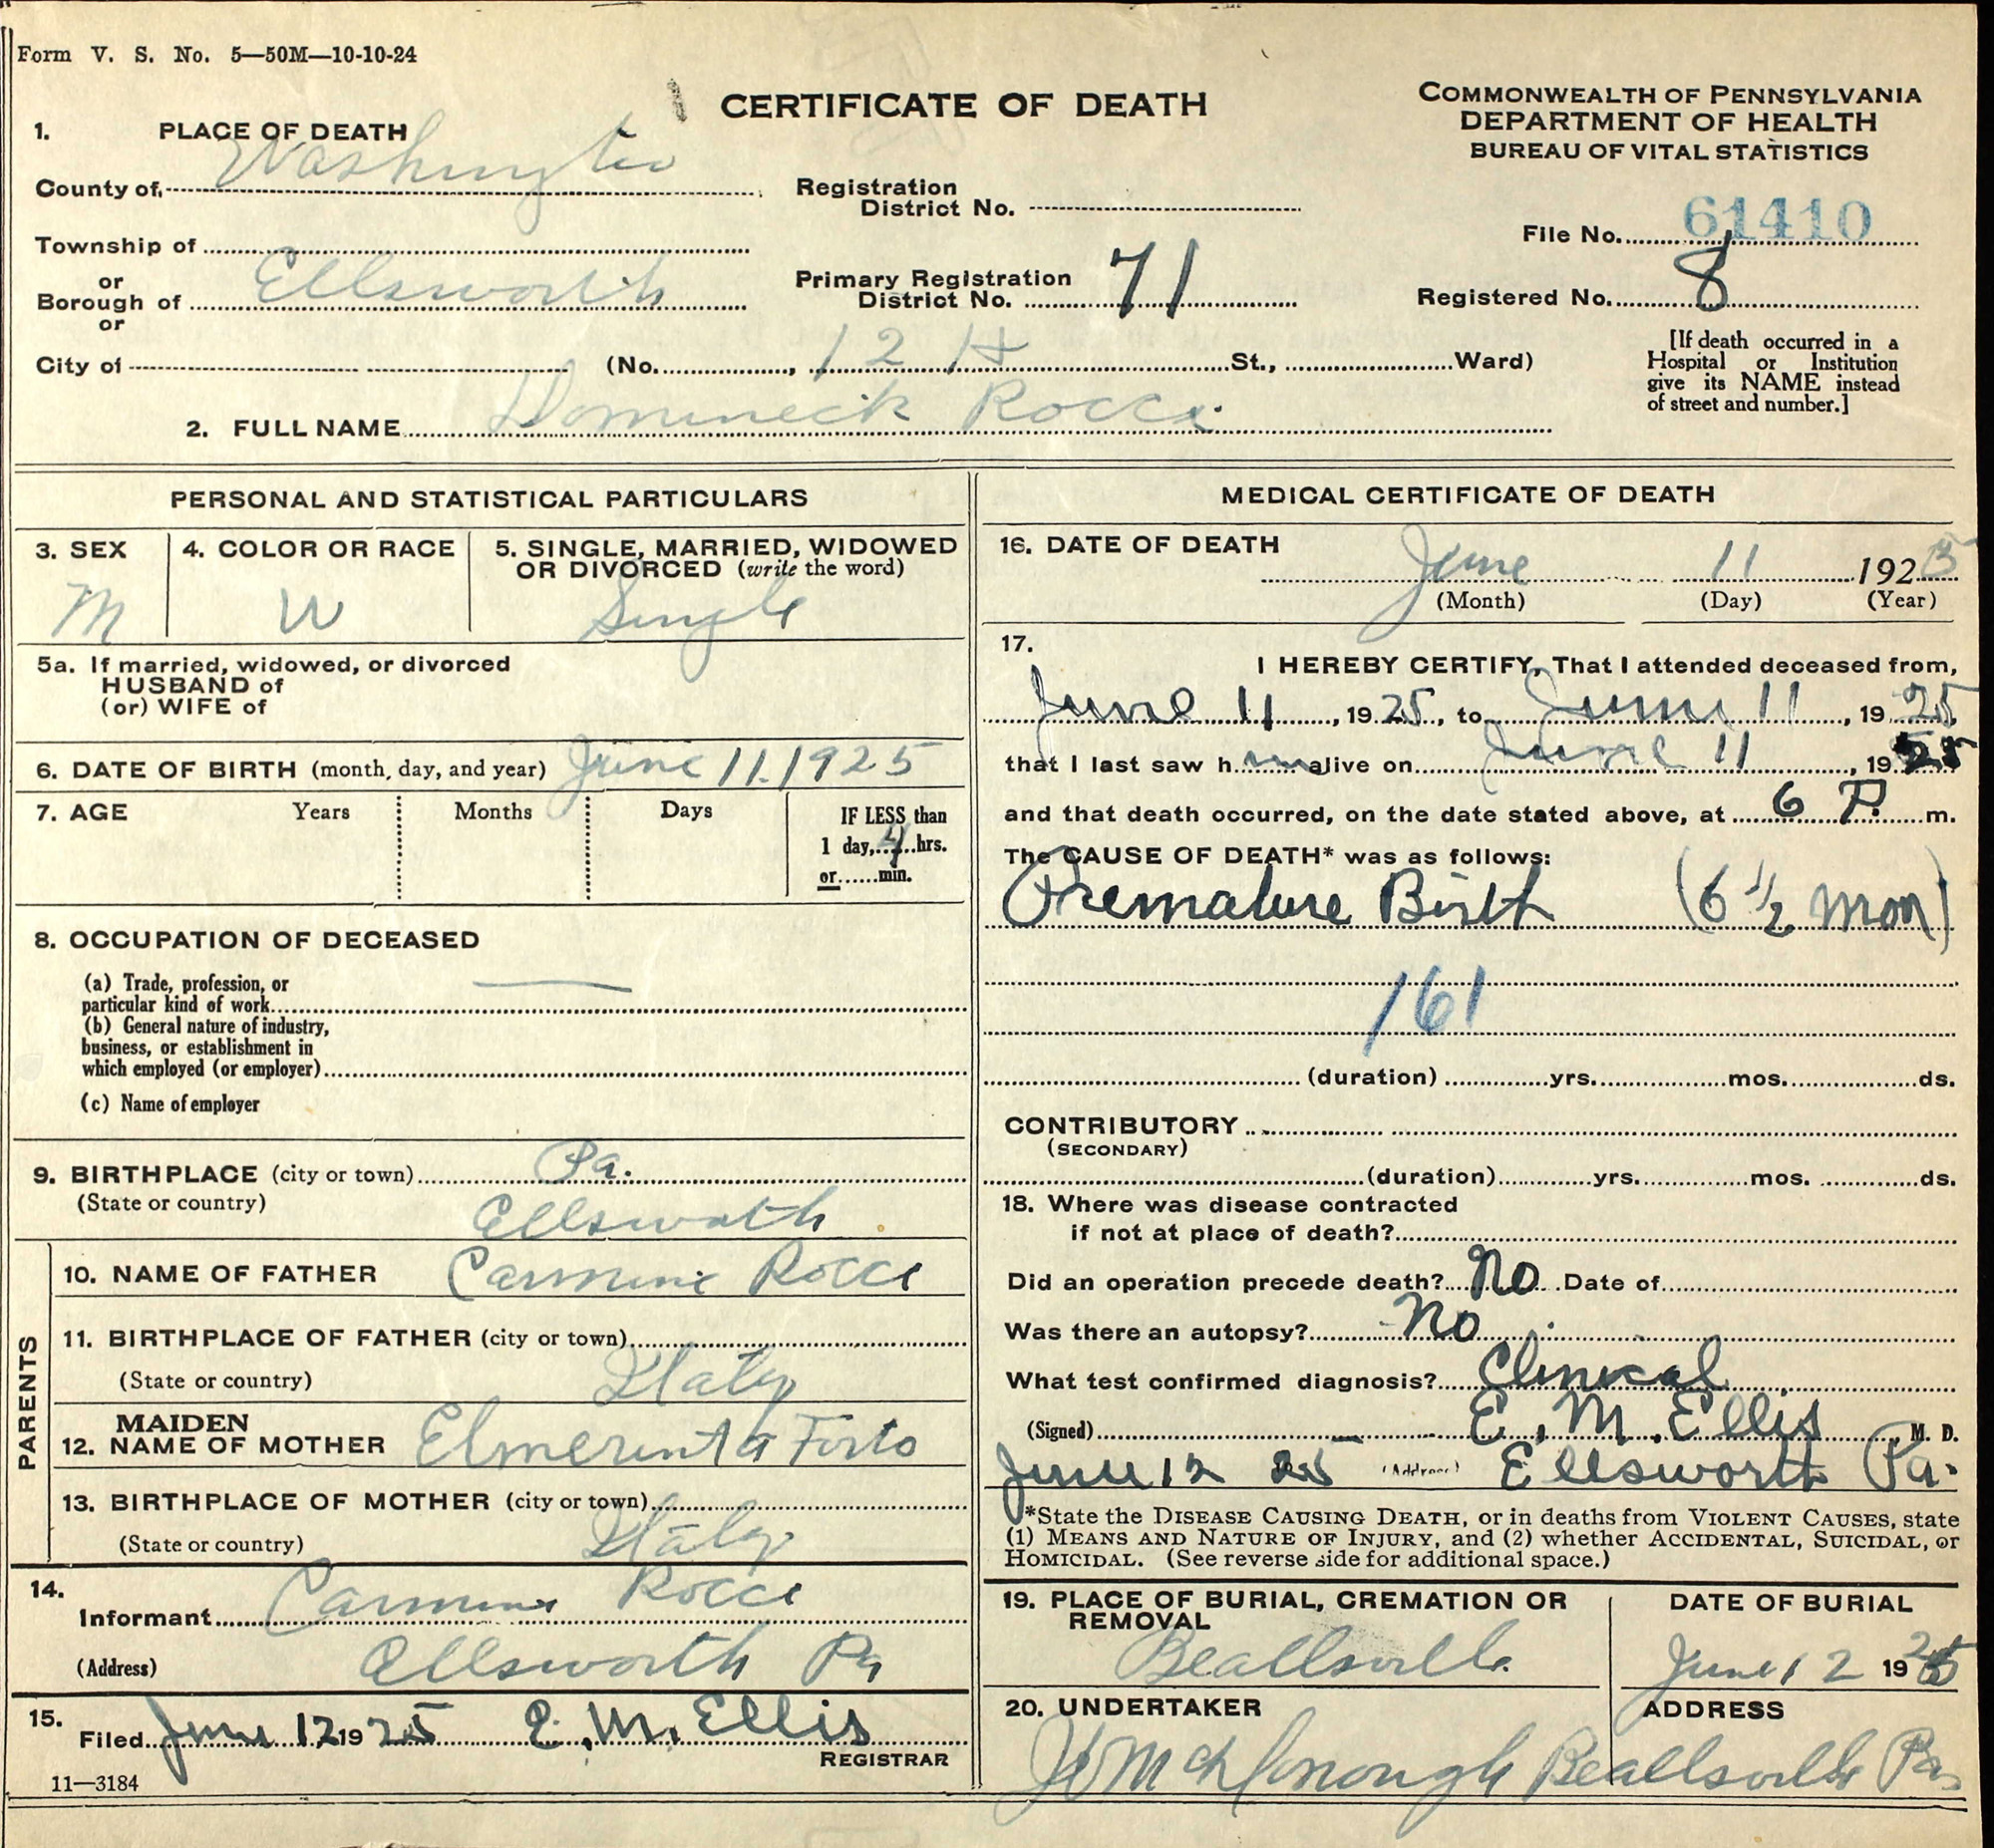 Form V. S. No. 5—50M—10-10-24
CERTIFICATE OF DEATH
COMMONWEALTH OF PENNSYLVANIA
DEPARTMENT OF HEALTH
BUREAU OF VITAL STATISTICS
1. PLACE OF DEATH
County of Washington
Registration District No.
File No. 61410
Township of
or
Borough of Ellsworth
Primary Registration District No. 71
Registered No. 8
or
City of (No. , 12 H St., Ward)
[If death occurred in a
Hospital or Institution
give its NAME instead
of street and number.]
2. FULL NAME Domineck Rocci
PERSONAL AND STATISTICAL PARTICULARS
3. SEX
M
4. COLOR OR RACE
W
5. SINGLE, MARRIED, WIDOWED
OR DIVORCED (write the word)
Single
5a. If married, widowed, or divorced
HUSBAND of
(or) WIFE of
6. DATE OF BIRTH (month, day, and year) June 11. 1925
7. AGE Years Months Days
IF LESS than
1 day, 4 hrs.
or......min.
8. OCCUPATION OF DECEASED
(a) Trade, profession, or
particular kind of work
(b) General nature of industry,
business, or establishment in
which employed (or employer)
(c) Name of employer
9. BIRTHPLACE (city or town) Pa.
(State or country) Ellsworth
PARENTS
10. NAME OF FATHER Carmine Rocci
11. BIRTHPLACE OF FATHER (city or town)
(State or country) Italy
MAIDEN
12. NAME OF MOTHER Elmerinta Forto
13. BIRTHPLACE OF MOTHER (city or town)
(State or country) Italy
14.
Informant Carmine Rocci
(Address) Ellsworth Pa
15.
Filed June 12 1925 E. M. Ellis
REGISTRAR
11—3184
MEDICAL CERTIFICATE OF DEATH
16. DATE OF DEATH
June 11 1925
(Month) (Day) (Year)
17.
I HEREBY CERTIFY, That I attended deceased from,
June 11, 1925, to June 11, 1925,
that I last saw h im alive on June 11, 1925
and that death occurred, on the date stated above, at 6 P. m.
The CAUSE OF DEATH* was as follows:
Premature Birth (6 1/2 mon)
161
(duration) yrs. mos. ds.
CONTRIBUTORY
(SECONDARY)
(duration) yrs. mos. ds.
18. Where was disease contracted
if not at place of death?
Did an operation precede death? No Date of
Was there an autopsy? No
What test confirmed diagnosis? Clinical
(Signed) E. M. Ellis, M. D.
June 12 25 (Address) Ellsworth Pa.
*State the DISEASE CAUSING DEATH, or in deaths from VIOLENT CAUSES, state
(1) MEANS AND NATURE OF INJURY, and (2) whether ACCIDENTAL, SUICIDAL, or
HOMICIDAL. (See reverse side for additional space.)
19. PLACE OF BURIAL, CREMATION OR
REMOVAL
Beallsville
DATE OF BURIAL
June 12 1925
20. UNDERTAKER
McDonough
ADDRESS
Beallsville Pa.